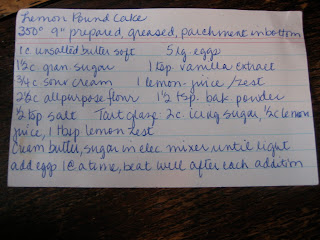 Lemon Pound Cake
350° 9" prepared, greased, parchment in bottom
1 c unsalted butter soft 5 lg eggs
1 1/2 c gran sugar 1 tsp vanilla extract
3/4 c sour cream 1 lemon - juice / zest
2 1/2 c all purpose flour 1 1/2 tsp. bak powder
1/2 tsp salt Tart glaze: 2 c. icing sugar, 1/2 c lemon
juice, 1 tbsp lemon zest
Cream butter, sugar in elec mixer until light
add eggs 1 @ a time, beat well after each addition